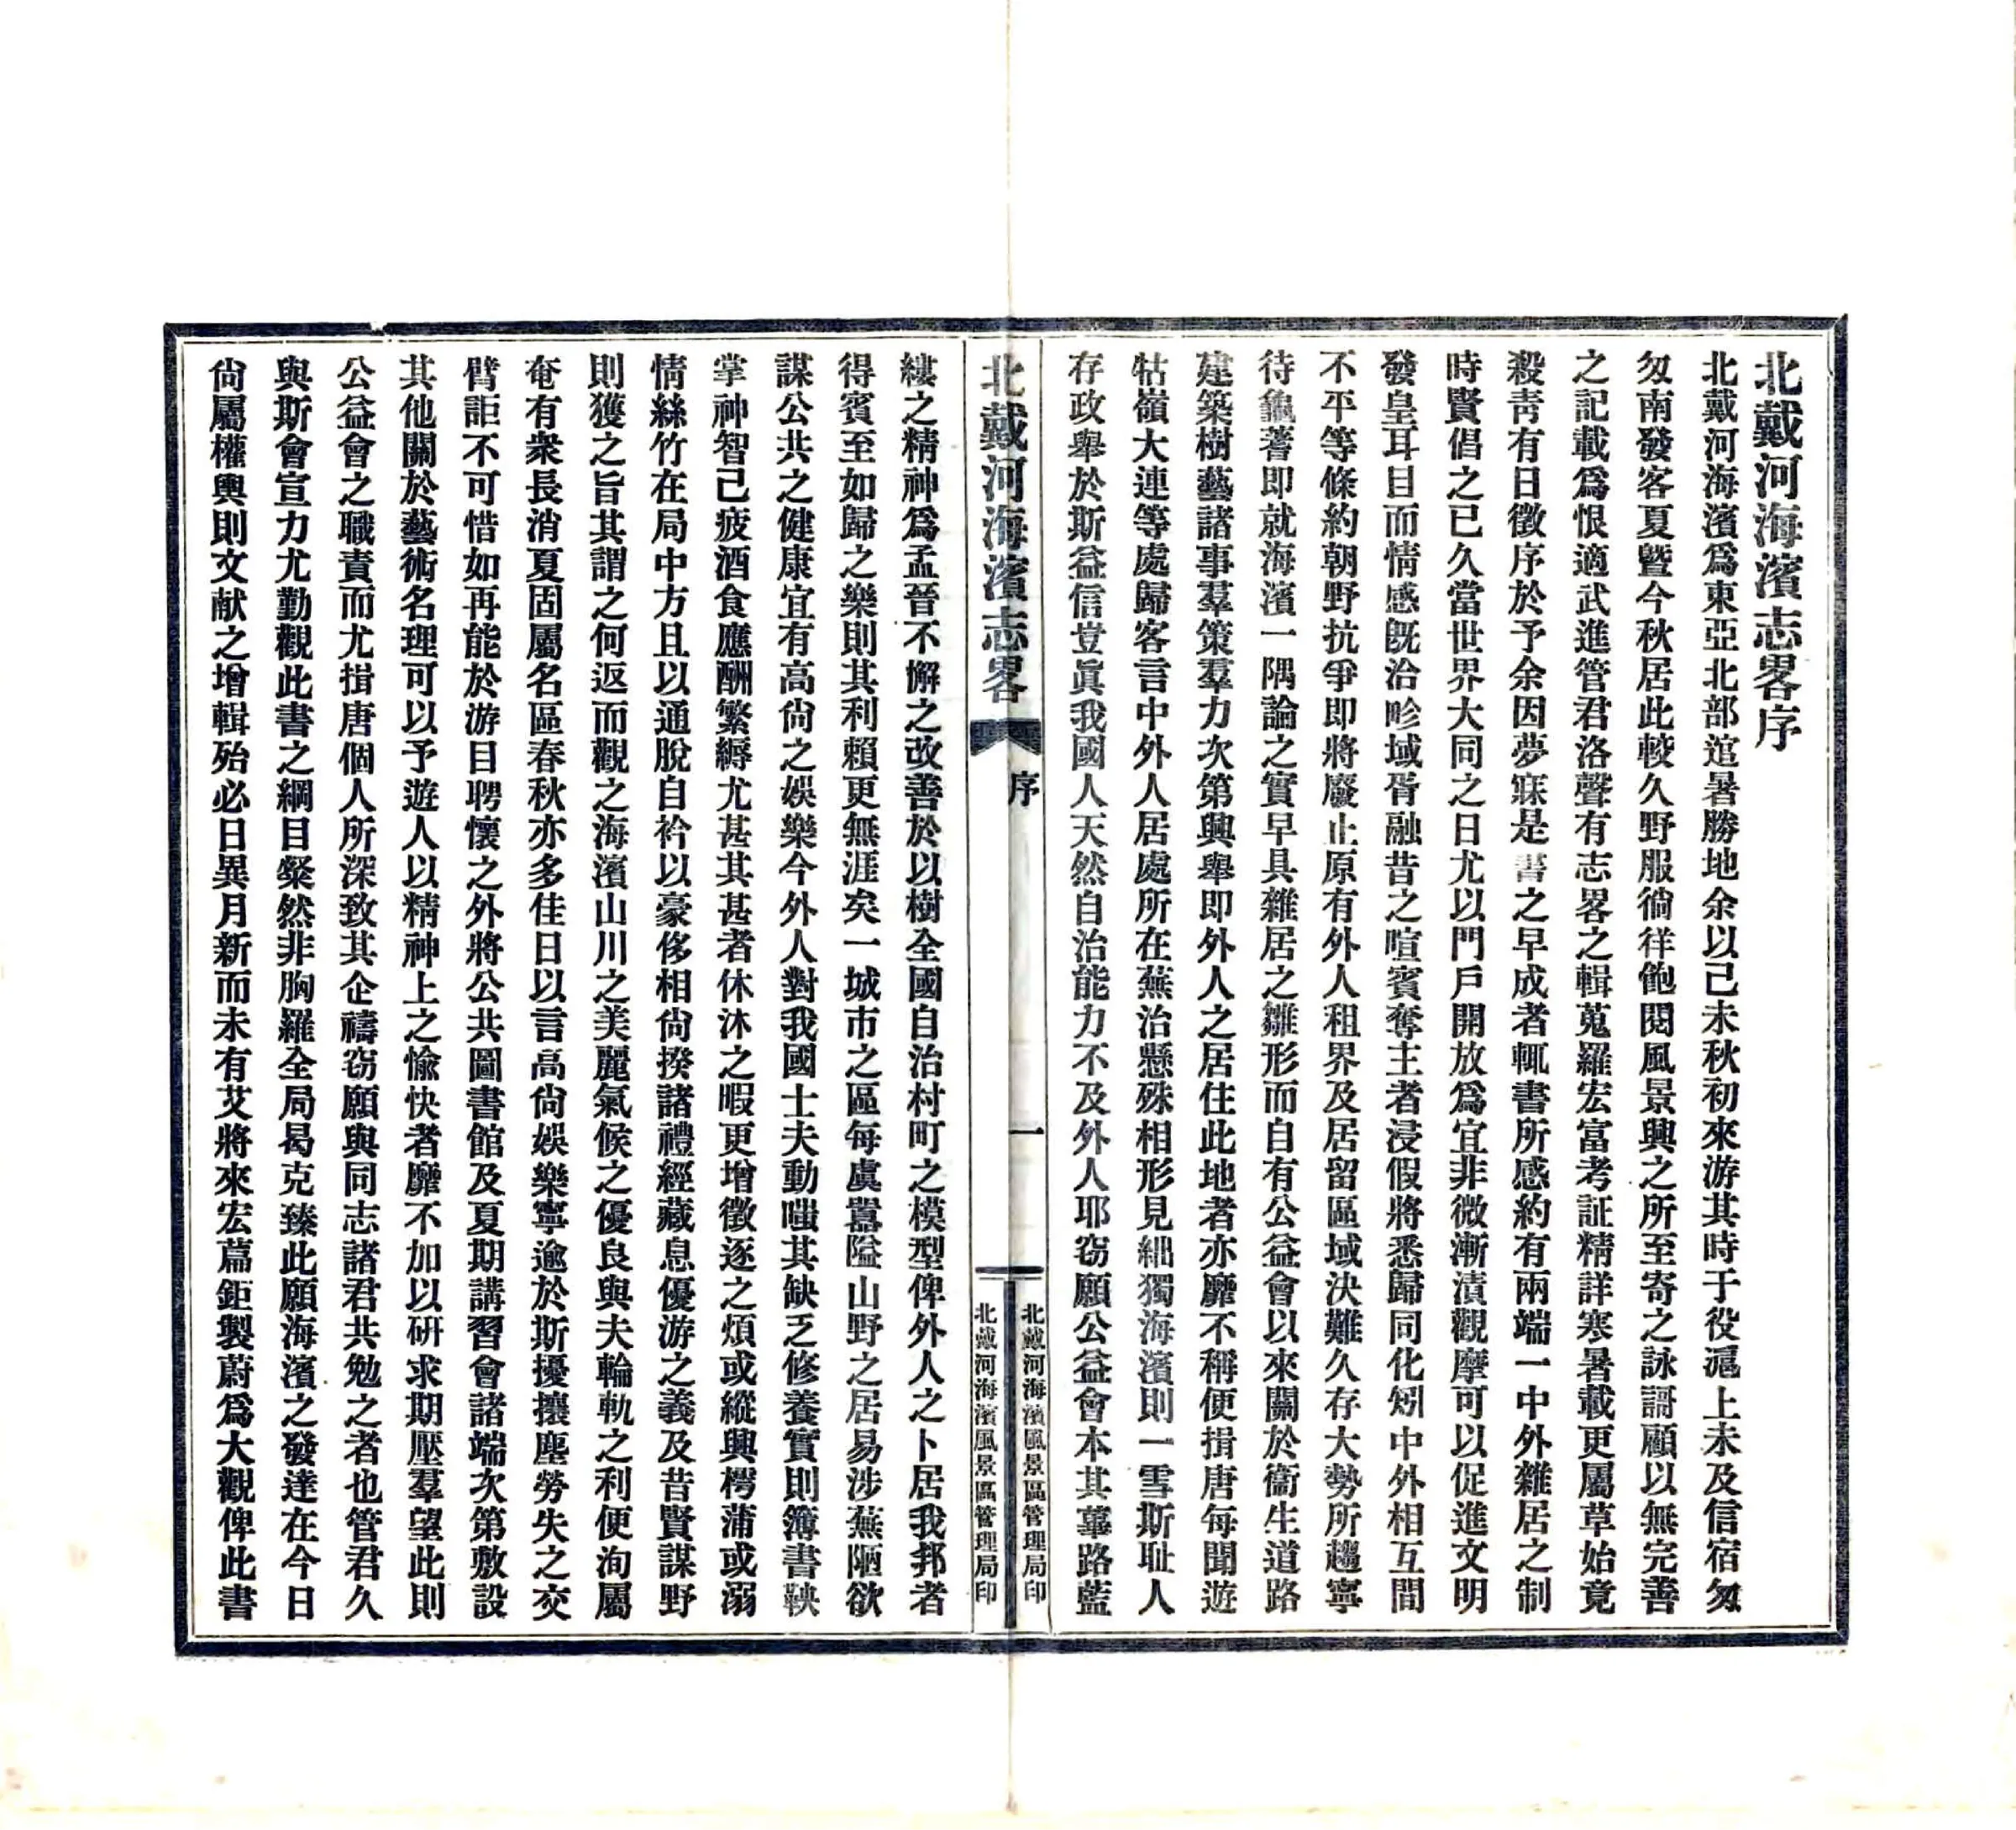 北戴河海濱志畧序
北戴河海濱爲東亞北部逭暑勝地余以己未秋初來游其時于役滬上未及信宿匆
匆南發客夏曁今秋居此較久野服徜徉飽閱風景興之所至寄之詠謌顧以無完善
之記載爲恨適武進管君洛聲有志畧之輯蒐羅宏富考証精詳寒暑載更屬草始竟
殺靑有日徵序於予余因夢寐是書之早成者輒書所感約有兩端一中外雜居之制
時賢倡之已久當世界大同之日尤以門戶開放爲宜非微漸漬觀摩可以促進文明
發皇耳目而情感旣洽畛域胥融昔之喧賓奪主者浸假將悉歸同化矧中外相互間
不平等條約朝野抗爭即將廢止原有外人租界及居留區域決難久存大勢所趨寧
待龜蓍即就海濱一隅論之實早具雜居之雛形而自有公益會以來關於衞生道路
建築樹藝諸事羣策羣力次第興舉即外人之居住此地者亦靡不稱便揖唐每聞遊
牯嶺大連等處歸客言中外人居處所在蕪治懸殊相形見絀獨海濱則一雪斯耻人
存政舉於斯益信豈眞我國人天然自治能力不及外人耶窃願公益會本其蓽路藍
北戴河海濱志畧
序
一
北戴河海濱風景區管理局印
北戴河海濱風景區管理局印
縷之精神爲孟晉不懈之改善於以樹全國自治村町之模型俾外人之卜居我邦者
得賓至如歸之樂則其利賴更無涯矣一城市之區每虞囂隘山野之居易涉蕪陋欲
謀公共之健康宜有高尙之娛樂今外人對我國士夫動嗤其缺乏修養實則簿書鞅
掌神智已疲酒食應酬繁縟尤甚其甚者休沐之暇更增徵逐之煩或縱興樗蒲或溺
情絲竹在局中方且以通脫自衿以豪侈相尙揆諸禮經藏息優游之義及昔賢謀野
則獲之旨其謂之何返而觀之海濱山川之美麗氣候之優良與夫輪軌之利便洵屬
奄有衆長消夏固屬名區春秋亦多佳日以言高尙娛樂寧逾於斯擾攘塵勞失之交
臂詎不可惜如再能於游目聘懷之外將公共圖書館及夏期講習會諸端次第敷設
其他關於藝術名理可以予遊人以精神上之愉快者靡不加以硏求期壓羣望此則
公益會之職責而尤揖唐個人所深致其企禱窃願與同志諸君共勉之者也管君久
與斯會宣力尤勤觀此書之綱目粲然非胸羅全局曷克臻此願海濱之發達在今日
尙屬權輿則文献之增輯殆必日異月新而未有艾將來宏篇鉅製蔚爲大觀俾此書